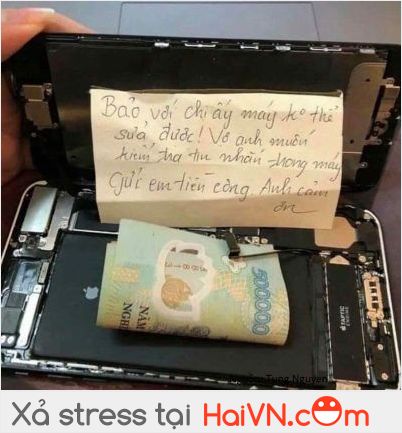 Bảo với chị ấy máy ko thể
sửa được! Vợ anh muốn
kiểm tra tin nhắn trong máy
Gửi em tiền công. Anh cảm
ơn
500000
NĂM
NGH
Tung Nguyen
Xả stress tại HaiVN.com